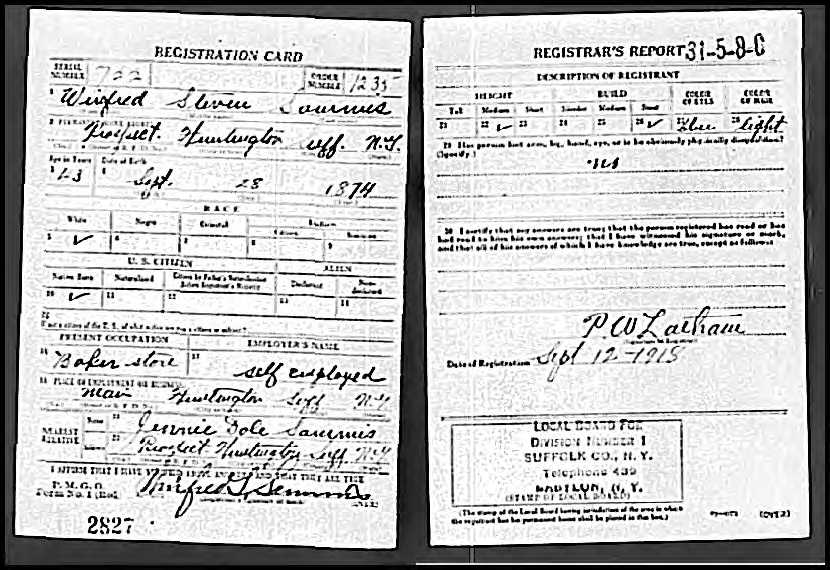 REGISTRATION CARD
SERIAL NUMBER 722 ORDER NUMBER 1235
1 Winfred Steven Sammis
2 PERMANENT HOME ADDRESS
Prospect. Huntington Suff. N.Y.
Age in Years Date of Birth
3 43 4 Sept. 28 1874
RACE
White Negro Oriental Indian
Citizen
5 ✓ 6 7 8 9
U. S. CITIZEN ALIEN
Native Born Naturalized Citizen by Father's Naturalization Before Registrant's Majority Declarant Non-declarant
10 ✓ 11 12 13 14
15
If not a citizen of the U. S., of what nation are you a citizen or subject?
PRESENT OCCUPATION EMPLOYER'S NAME
16 Baker store 17 self employed
18 PLACE OF EMPLOYMENT OR BUSINESS
Main Huntington Suff N.Y.
NEAREST RELATIVE
Name 19 Jennie Sammis
Address 20 Prospect Huntington Suff N.Y.
I AFFIRM THAT I HAVE VERIFIED ABOVE ANSWERS AND THAT THEY ARE TRUE
P. M. G. O.
Form No. 1 (Red) Winfred S. Sammis
(OVER)
2827
REGISTRAR'S REPORT 31-5-8-C
DESCRIPTION OF REGISTRANT
HEIGHT BUILD COLOR OF EYES COLOR OF HAIR
Tall Medium Short Slender Medium Stout
21 22 ✓ 23 24 25 26 ✓ 27 blue 28 light
29 Has person lost arm, leg, hand, eye, or is he obviously physically disqualified?
(Specify.)
no
30 I certify that my answers are true; that the person registered has read or has
had read to him his own answers; that I have witnessed his signature or mark,
and that all of his answers of which I have knowledge are true, except as follows:
P. W Latham
(Signature of Registrar)
Date of Registration Sept 12 - 1918
LOCAL BOARD FOR
DIVISION NUMBER 1
SUFFOLK CO., N. Y.
Telephone 439
BABYLON, N. Y.
(STAMP OF LOCAL BOARD)
(The stamp of the Local Board having jurisdiction of the area in which
the registrant has his permanent home shall be placed in this box.)
(OVER)